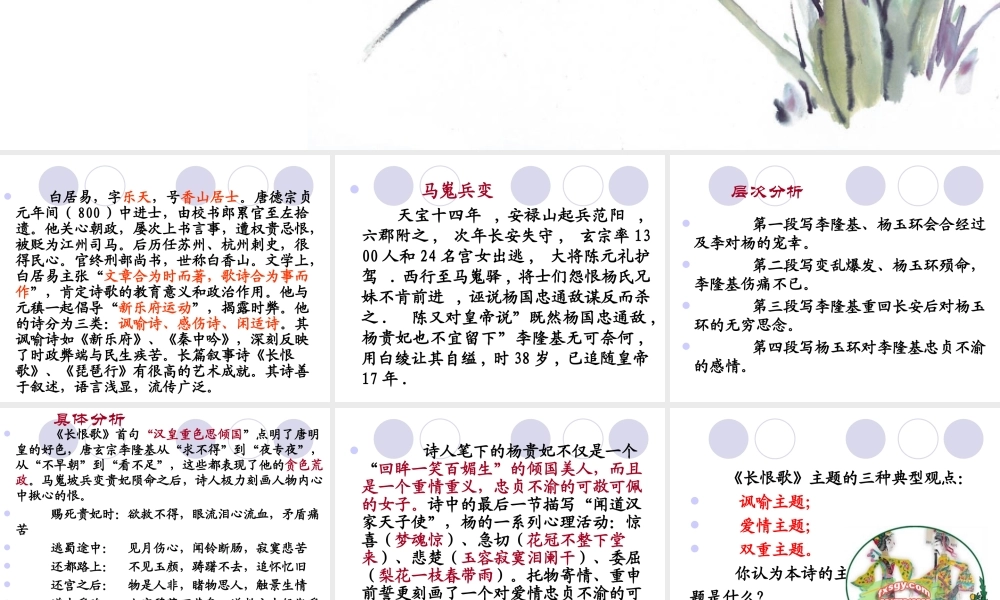 白居易，字乐天，号香山居士。唐德宗贞
元年间（800）中进士，由校书郎累官至左拾
遗。他关心朝政，屡次上书言事，遭权贵忌恨，
被贬为江州司马。后历任苏州、杭州刺史，很
得民心。官终刑部尚书，世称白香山。文学上，
白居易主张“文章合为时而著，歌诗合为事而
作”，肯定诗歌的教育意义和政治作用。他与
元稹一起倡导“新乐府运动”，揭露时弊。他
的诗分为三类：讽喻诗、感伤诗、闲适诗。其
讽喻诗如《新乐府》、《秦中吟》，深刻反映
了时政弊端与民生疾苦。长篇叙事诗《长恨
歌》、《琵琶行》有很高的艺术成就。其诗善
于叙述，语言浅显，流传广泛。
马嵬兵变
天宝十四年 ，安禄山起兵范阳 ，
六郡附之， 次年长安失守， 玄宗率 13
00 人和 24 名宫女出逃， 大将陈元礼护
驾 . 西行至马嵬驿 , 将士们怨恨杨氏兄
妹不肯前进 ，诬说杨国忠通敌谋反而杀
之． 陈又对皇帝说”既然杨国忠通敌，
杨贵妃也不宜留下”李隆基无可奈何，
用白绫让其自缢 , 时 38 岁 , 已追随皇帝
17 年 .
层次分析
第一段写李隆基、杨玉环会合经过
及李对杨的宠幸。
第二段写变乱爆发、杨玉环殒命，
李隆基伤痛不已。
第三段写李隆基重回长安后对杨玉
环的无穷思念。
第四段写杨玉环对李隆基忠贞不渝
的感情。
具体分析
《长恨歌》首句“汉皇重色思倾国”点明了唐明
皇的好色，唐玄宗李隆基从“求不得”到“夜专夜”，
从“不早朝”到“看不足”，这些都表现了他的贪色荒
政。马嵬坡兵变贵妃殒命之后，诗人极力刻画人物内心
中揪心的恨。
赐死贵妃时：欲救不得，眼流泪心流血，矛盾痛
苦
逃蜀途中： 见月伤心，闻铃断肠，寂寞悲苦
还都路上： 不见玉颜，踌躇不去，追怀忆旧
还宫之后： 物是人非，睹物思人，触景生情
诗人笔下的杨贵妃不仅是一个
“回眸一笑百媚生”的倾国美人，而且
是一个重情重义，忠贞不渝的可敬可佩
的女子。诗中的最后一节描写“闻道汉
家天子使”，杨的一系列心理活动：惊
喜（梦魂惊）、急切（花冠不整下堂
来）、悲楚（玉容寂寞泪阑干）、委屈
（梨花一枝春带雨）。托物寄情、重申
前誓更刻画了一个对爱情忠贞不渝的可
《长恨歌》主题的三种典型观点：
讽喻主题；
爱情主题；
双重主题。
你认为本诗的主
题是什么？